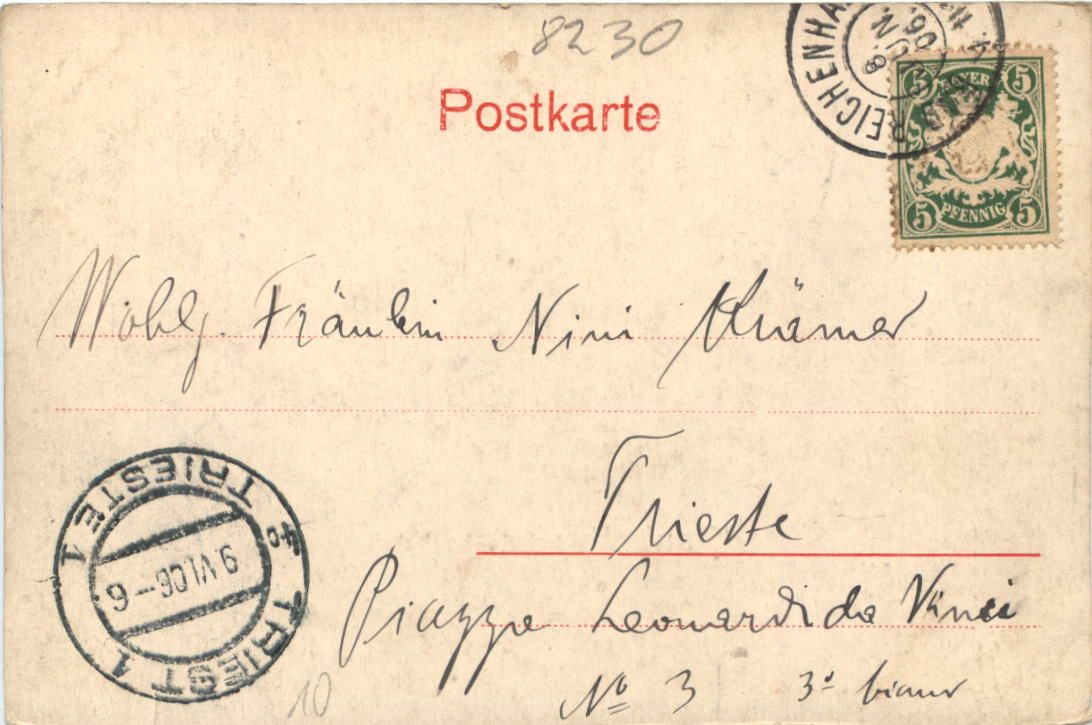 8230
Postkarte
BAD REICHENHALL
8. JUN. 06.
5 BAYERN 5
5 PFENNIG 5
Wohlg. Fräulein Nini Krämer
Trieste
Piazza Leonardi da Vinci
No 3 3º
TRIESTE 1
9 VI. 06 - 6
TRIEST 1
10